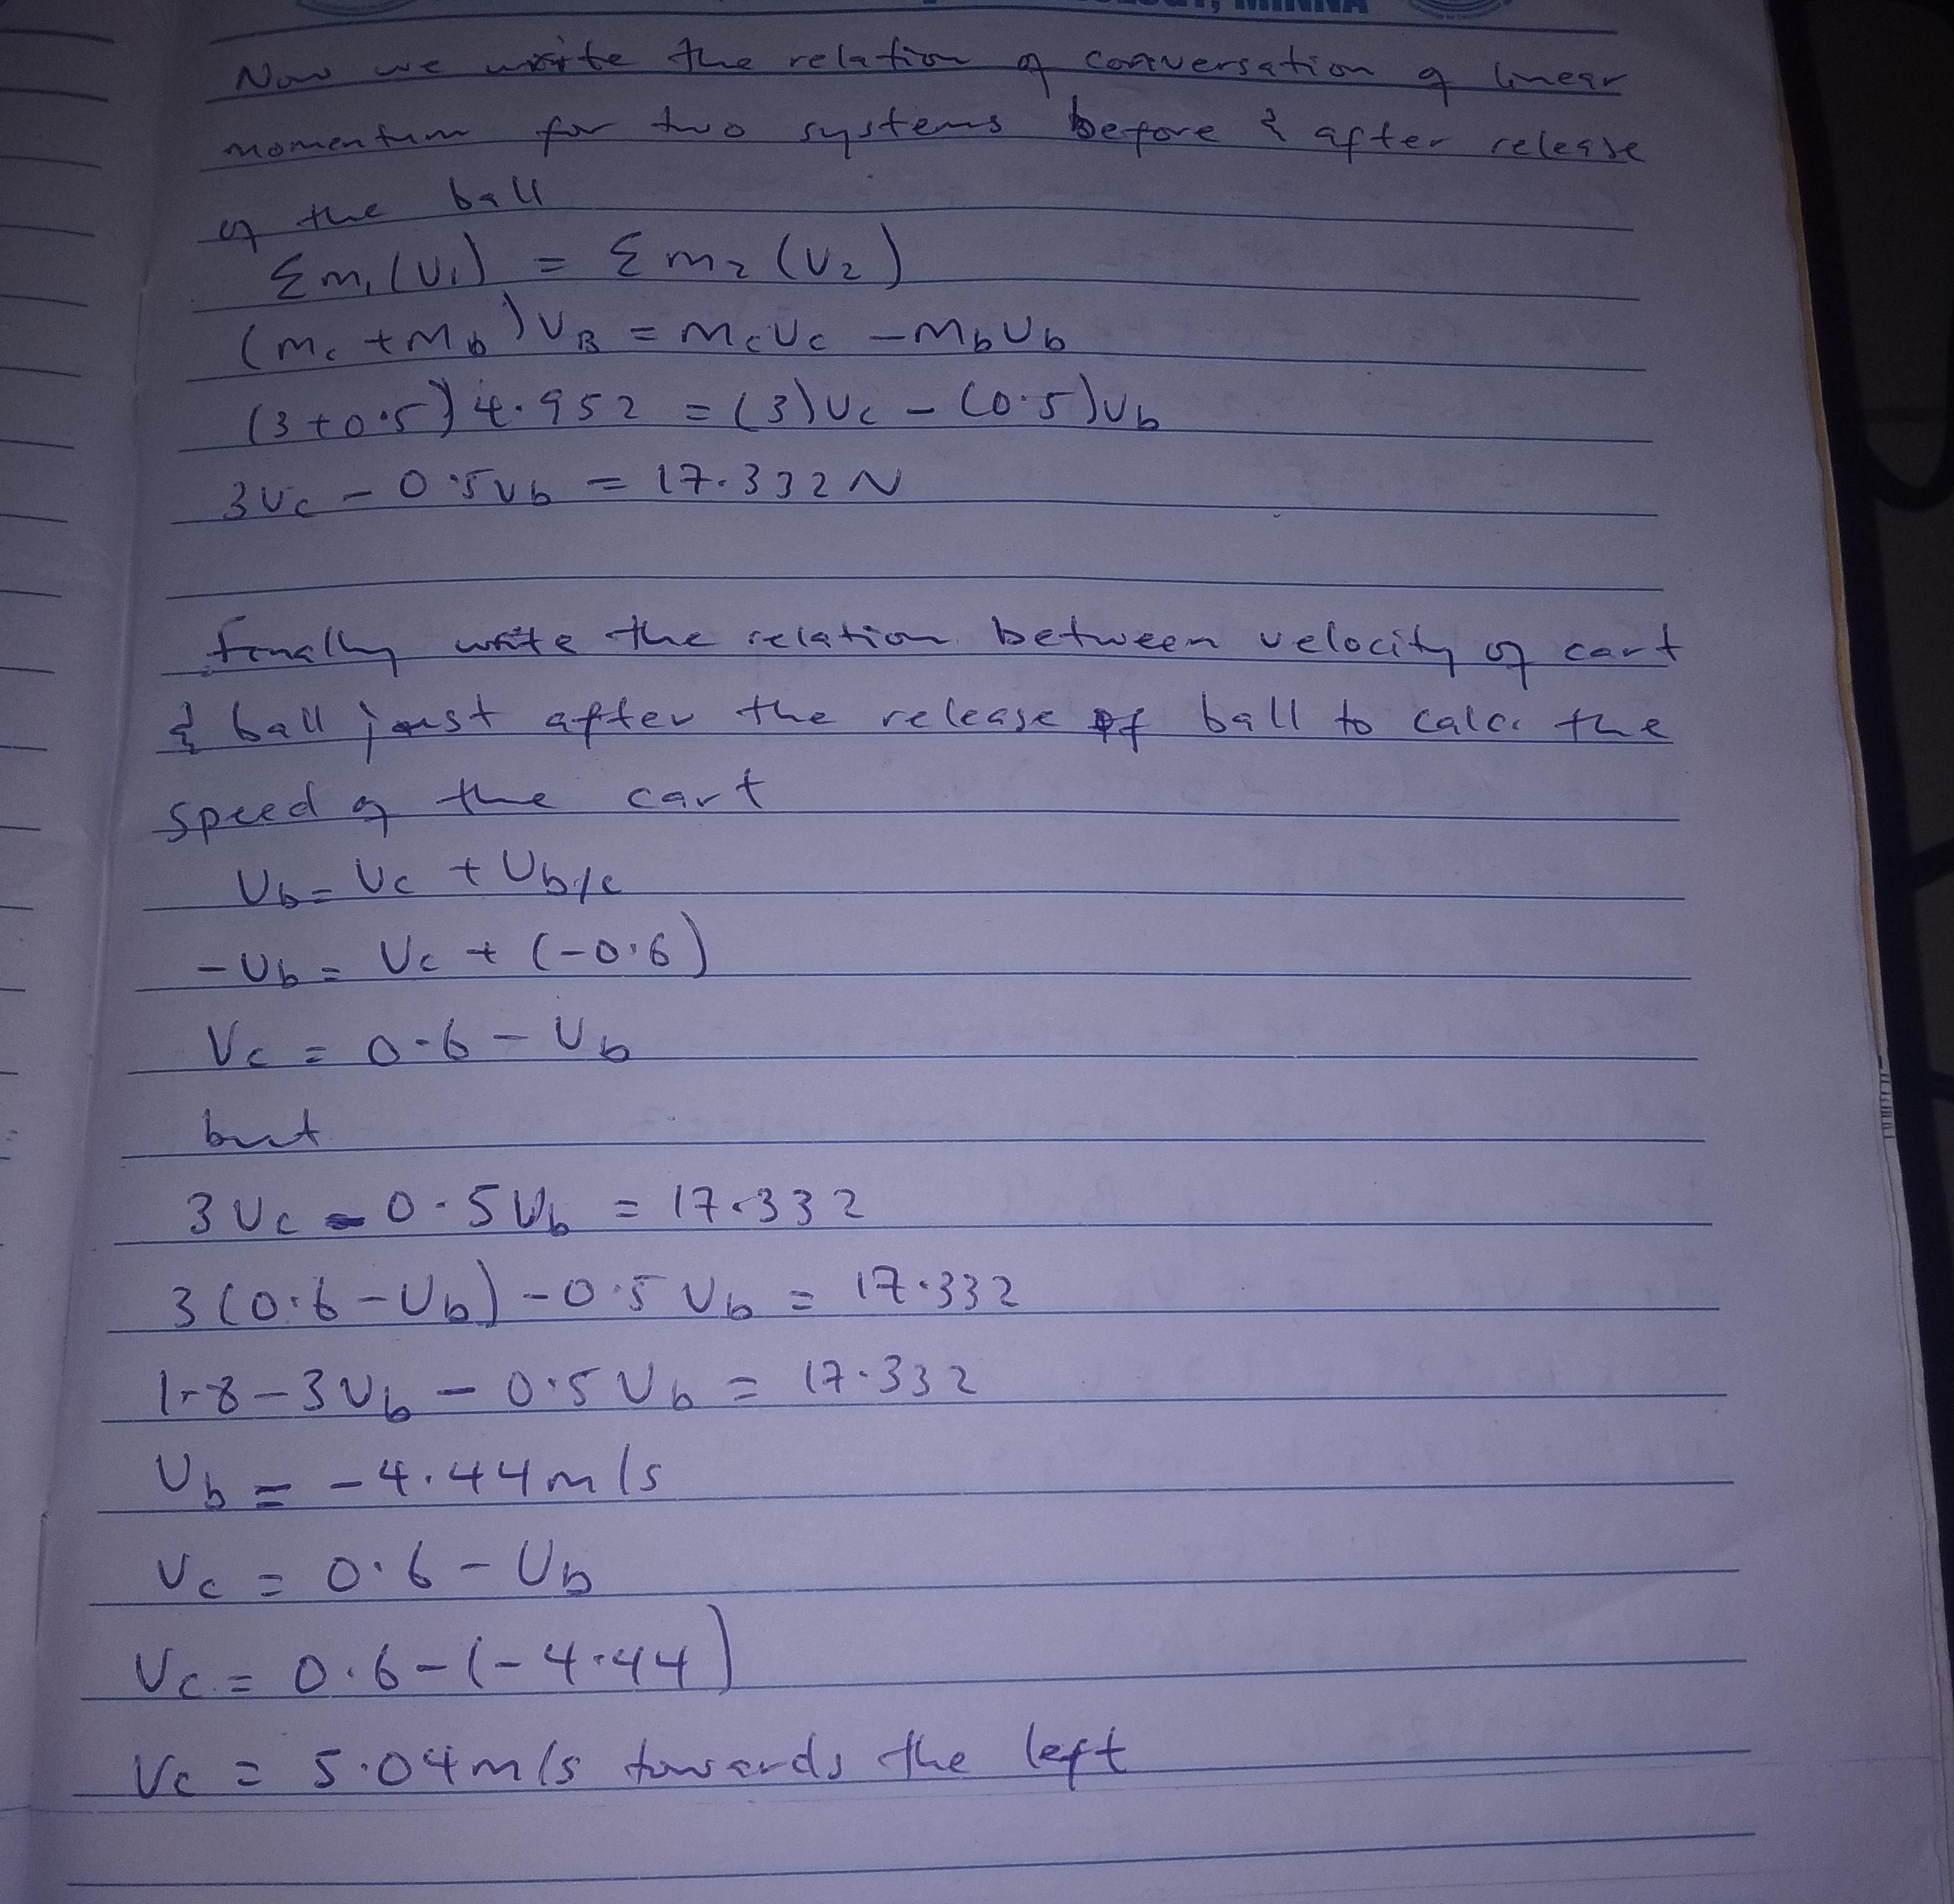 MINNA
Now we write the relation of conversation of linear
momentum for two systems before & after release
of the ball
Σm₁(V₁) = Σm₂(V₂)
(mc + mb)VB = mcVc - mbVb
(3+0.5)4.952 = (3)Vc - (0.5)Vb
3Vc - 0.5Vb = 17.332N
finally write the relation between velocity of cart
& ball just after the release of ball to calc. the
speed of the cart
Vb = Vc + Vb/c
-Vb = Vc + (-0.6)
Vc = 0.6 - Vb
but
3Vc - 0.5Vb = 17.332
3(0.6 - Vb) - 0.5Vb = 17.332
1.8 - 3Vb - 0.5Vb = 17.332
Vb = -4.44m/s
Vc = 0.6 - Vb
Vc = 0.6 - (-4.44)
Vc = 5.04m/s towards the left